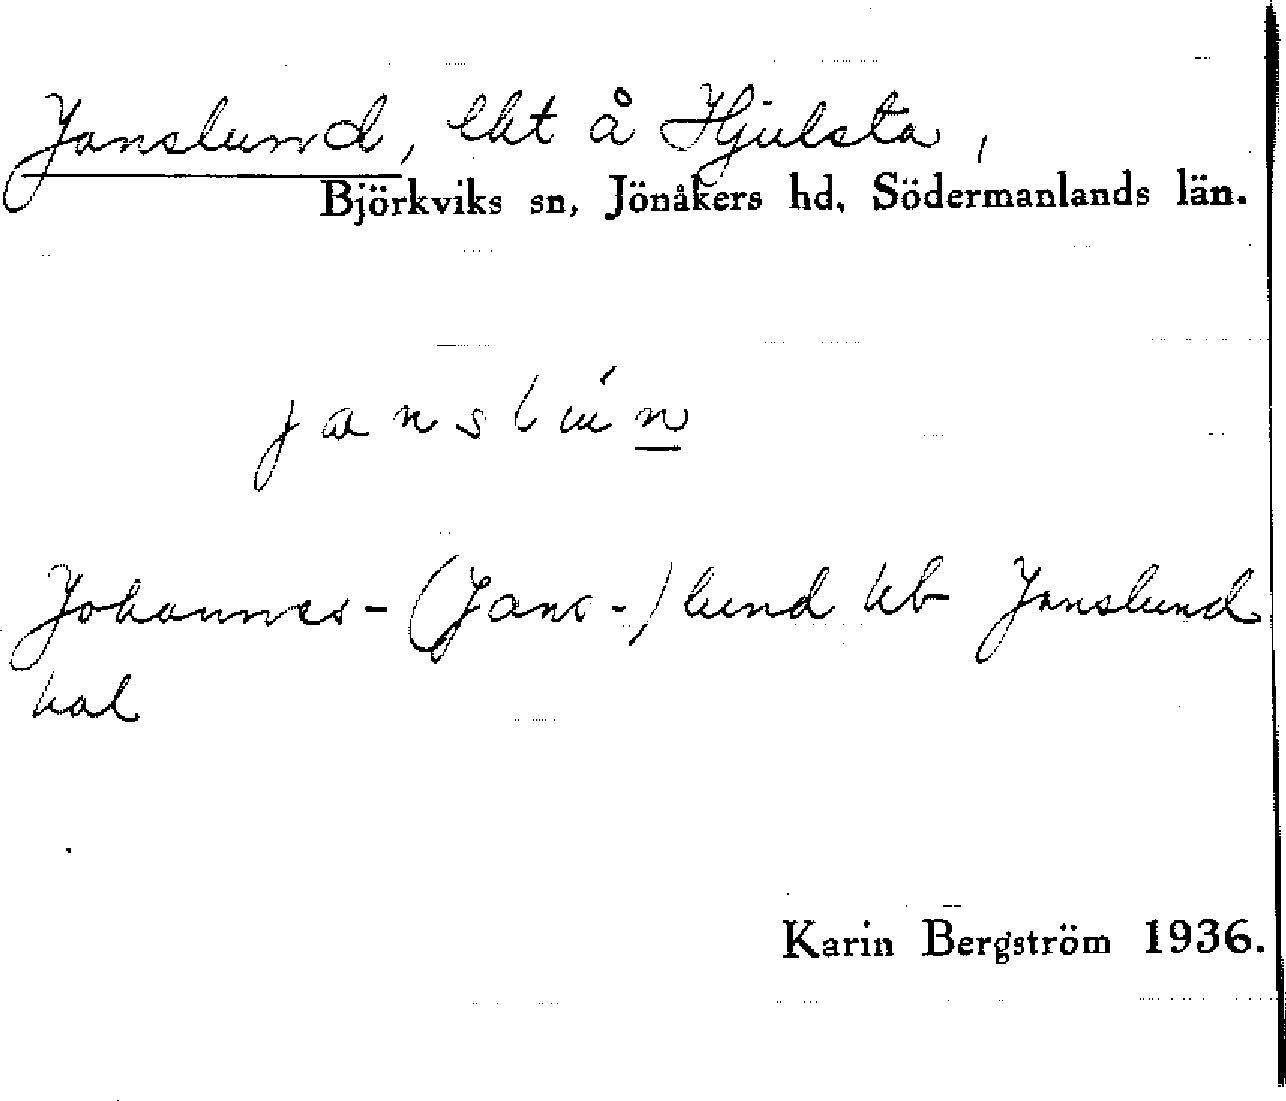 Janslund, lht å Hjulsta,
Björkviks sn, Jönåkers hd, Södermanlands län.
janslún
Johannes-(Jans-)lund kb Janslund
hal
Karin Bergström 1936.